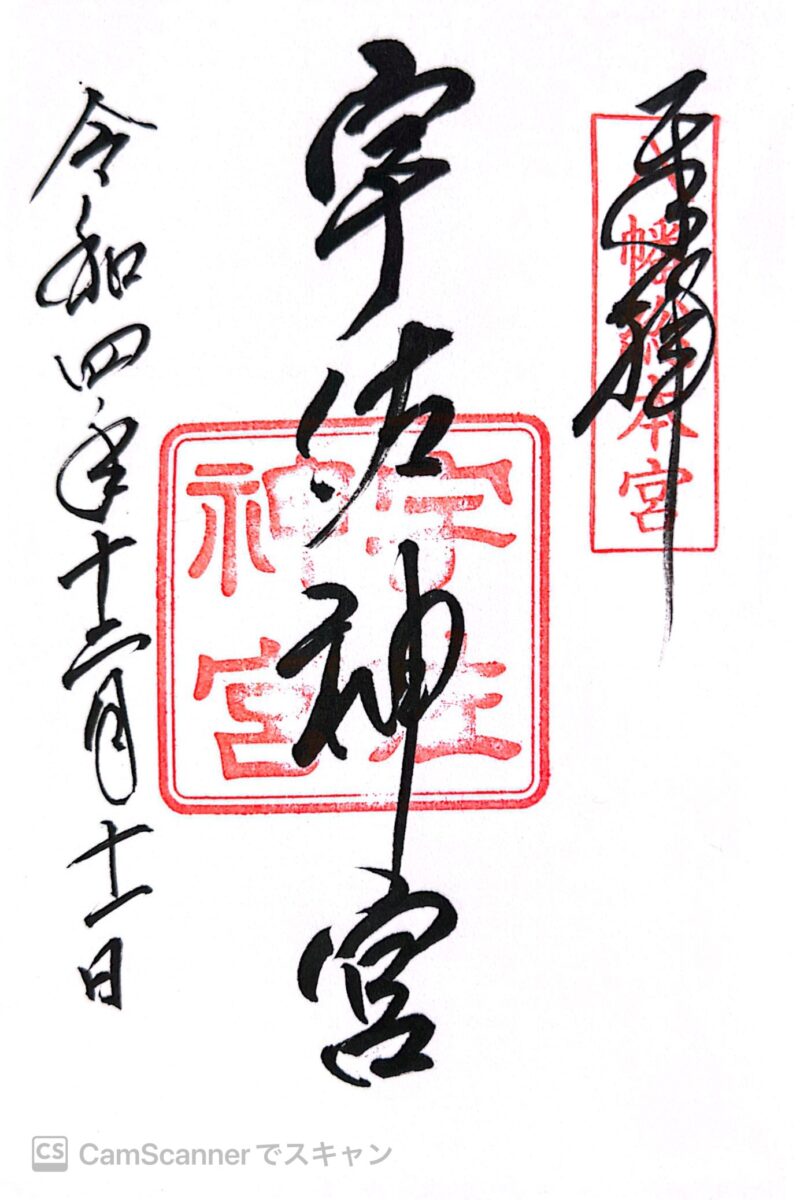 奉拝
八幡総本宮
宇佐神宮
宇佐
神宮
令和四年十二月十一日
CS CamScannerでスキャン